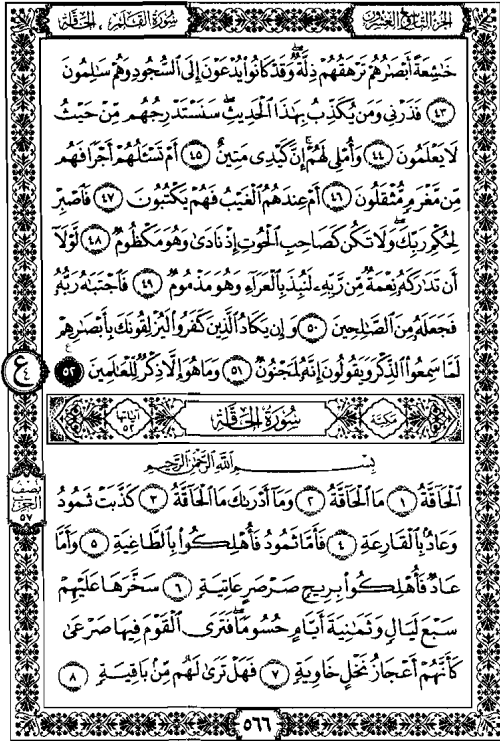 سُورَةُ القَلَمِ ، الحَاقَّةِ
الجزء التاسع والعشرون
خَٰشِعَةً أَبْصَٰرُهُمْ تَرْهَقُهُمْ ذِلَّةٌ ۖ وَقَدْ كَانُوا۟ يُدْعَوْنَ إِلَى ٱلسُّجُودِ وَهُمْ سَٰلِمُونَ
٤٣ فَذَرْنِى وَمَن يُكَذِّبُ بِهَٰذَا ٱلْحَدِيثِ ۖ سَنَسْتَدْرِجُهُم مِّنْ حَيْثُ
لَا يَعْلَمُونَ ٤٤ وَأُمْلِى لَهُمْ ۚ إِنَّ كَيْدِى مَتِينٌ ٤٥ أَمْ تَسْـَٔلُهُمْ أَجْرًا فَهُم
مِّن مَّغْرَمٍ مُّثْقَلُونَ ٤٦ أَمْ عِندَهُمُ ٱلْغَيْبُ فَهُمْ يَكْتُبُونَ ٤٧ فَٱصْبِرْ
لِحُكْمِ رَبِّكَ وَلَا تَكُن كَصَاحِبِ ٱلْحُوتِ إِذْ نَادَىٰ وَهُوَ مَكْظُومٌ ٤٨ لَّوْلَآ
أَن تَدَٰرَكَهُۥ نِعْمَةٌ مِّن رَّبِّهِۦ لَنُبِذَ بِٱلْعَرَآءِ وَهُوَ مَذْمُومٌ ٤٩ فَٱجْتَبَٰهُ رَبُّهُۥ
فَجَعَلَهُۥ مِنَ ٱلصَّٰلِحِينَ ٥٠ وَإِن يَكَادُ ٱلَّذِينَ كَفَرُوا۟ لَيُزْلِقُونَكَ بِأَبْصَٰرِهِمْ
لَمَّا سَمِعُوا۟ ٱلذِّكْرَ وَيَقُولُونَ إِنَّهُۥ لَمَجْنُونٌ ٥١ وَمَا هُوَ إِلَّا ذِكْرٌ لِّلْعَٰلَمِينَ ٥٢
ع
مكية
سُورَةُ الحَاقَّةِ
آياتها ٥٢
بِسْمِ ٱللَّهِ ٱلرَّحْمَٰنِ ٱلرَّحِيمِ
ٱلْحَآقَّةُ ١ مَا ٱلْحَآقَّةُ ٢ وَمَآ أَدْرَىٰكَ مَا ٱلْحَآقَّةُ ٣ كَذَّبَتْ ثَمُودُ
نصف الحزب ٥٧
وَعَادٌۢ بِٱلْقَارِعَةِ ٤ فَأَمَّا ثَمُودُ فَأُهْلِكُوا۟ بِٱلطَّاغِيَةِ ٥ وَأَمَّا
عَادٌ فَأُهْلِكُوا۟ بِرِيحٍ صَرْصَرٍ عَاتِيَةٍ ٦ سَخَّرَهَا عَلَيْهِمْ
سَبْعَ لَيَالٍ وَثَمَٰنِيَةَ أَيَّامٍ حُسُومًا فَتَرَى ٱلْقَوْمَ فِيهَا صَرْعَىٰ
كَأَنَّهُمْ أَعْجَازُ نَخْلٍ خَاوِيَةٍ ٧ فَهَلْ تَرَىٰ لَهُم مِّنۢ بَاقِيَةٍ ٨
٥٦٦